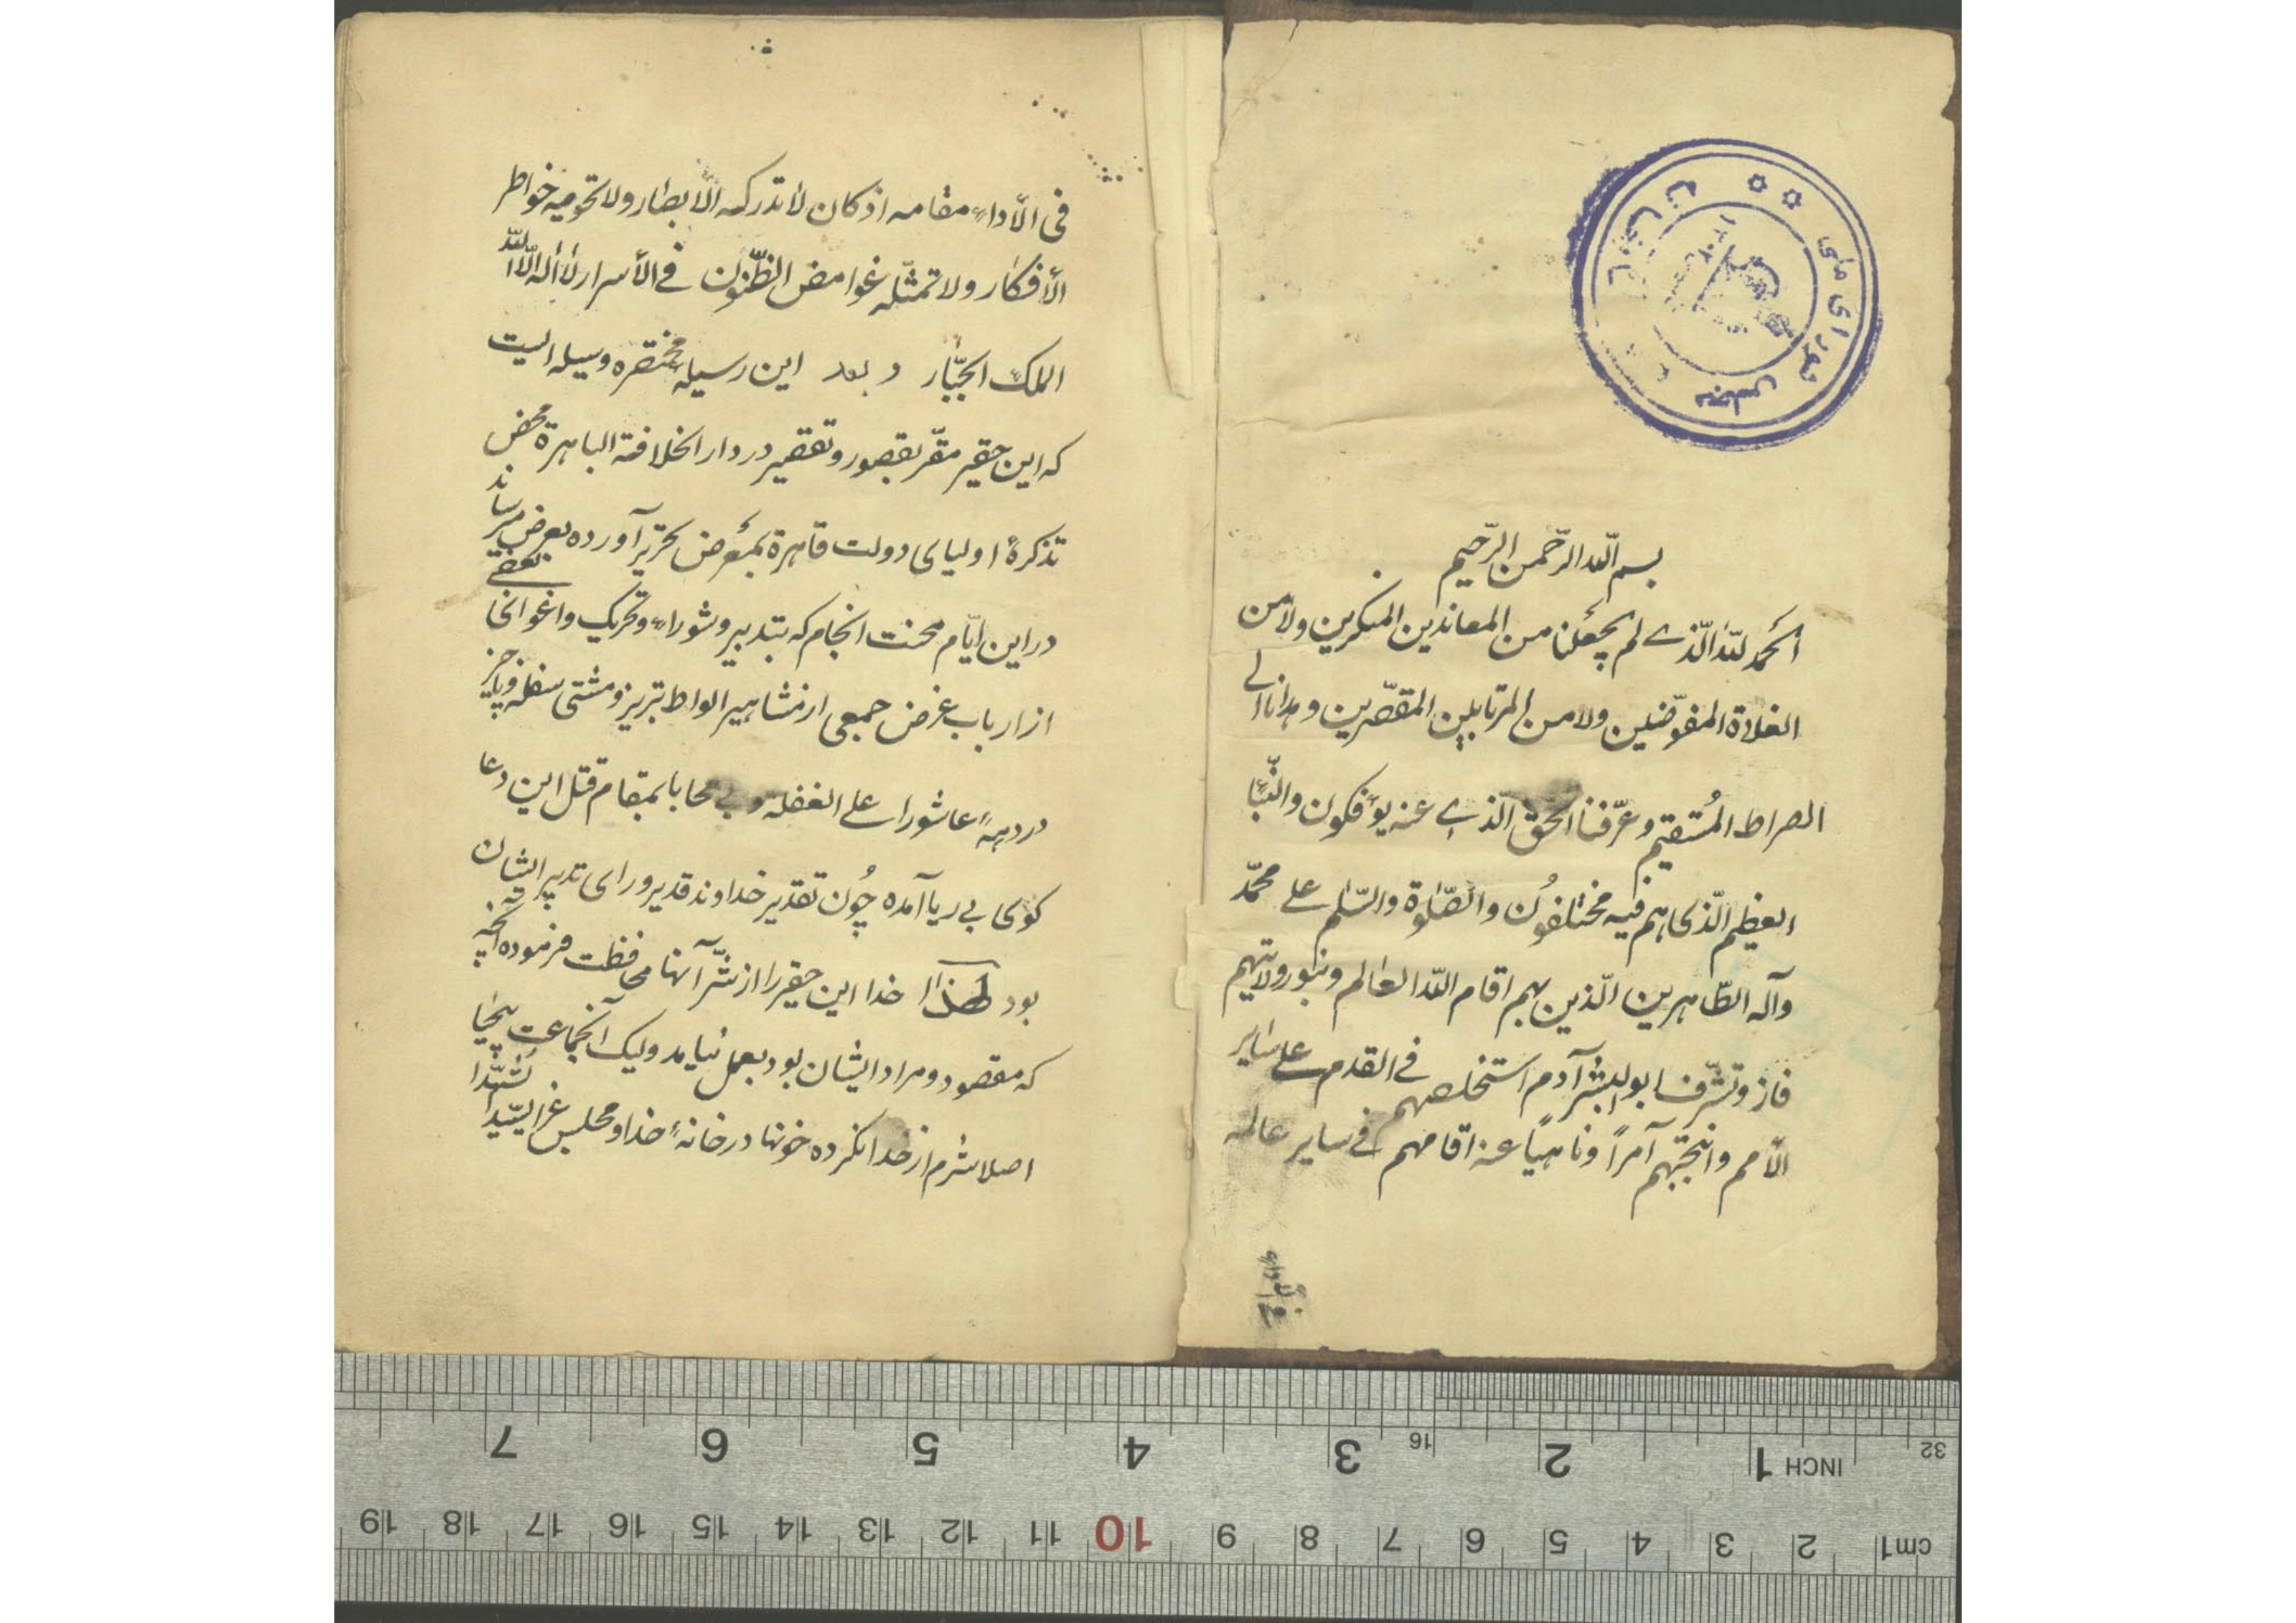 کتابخانه مجلس شورای ملی
۱۳۰۲
بسم الله الرّحمن الرّحیم
الحَمدُ للّه الّذے لم یجعَلنا من المعاندین المنکرین ولا من
الغلاة المفوّضین ولا من المرتابین المقصّرین و هدانا الے
الصراط المُستقیم و عرّفنا الحق الّذے عنه یؤفکون والنّبأ
العظیم الّذی هم فیه مختلفُون والصّلوة والسّلم علے محمّد
وآله الطّاهرین الّذین بهم اقام اللّه العالم وبنور ولایتهم
فاز وتشرّف ابو البشر آدم استخلصهم فے القدم علے سایر
الأمم وانتجبهم آمراً وناهیاً عنه اقامهم فے سایر عالمه
فی الأداء مقامه اذ کان لا تدرکه الأبصار ولا تحویه خواطر
الأفکار ولا تمثّله غوامض الظّنون فے الأسرار لا اله الّا اللّه
الملک الجبّار و بعد این رسیلهٔ مختصره وسیله ایست
که این حقیر مقرّ بقصور و تقصیر در دار الخلافة الباهرة محض
تذکرهٔ اولیای دولت قاهرة بمَعرض تحریر آورده بعرض میرساند
در این ایّام محنت انجام که بتدبیر و شوراء و تحریک و اغوای بعضے
از ارباب غرض جمعی از مشاهیر الواط تبریز و مشتی سفله و ناچیز
در دههٔ عاشورا علے الغفله و بے محابا بمقام قتل این دعا
کوی بے ریا آمده چُون تقدیر خداوند قدیر ورای تدبیر ایشان
بود لهذا خدا این حقیر را از شّر آنها محافظت فرموده آنچه
که مقصود و مراد ایشان بود بعمل نیامد ولیک آنجماعت بیحیا
اصلا شرم از خدا نکرده خونها در خانهٔ خدا و مجلس عزای سیّد الشهدا